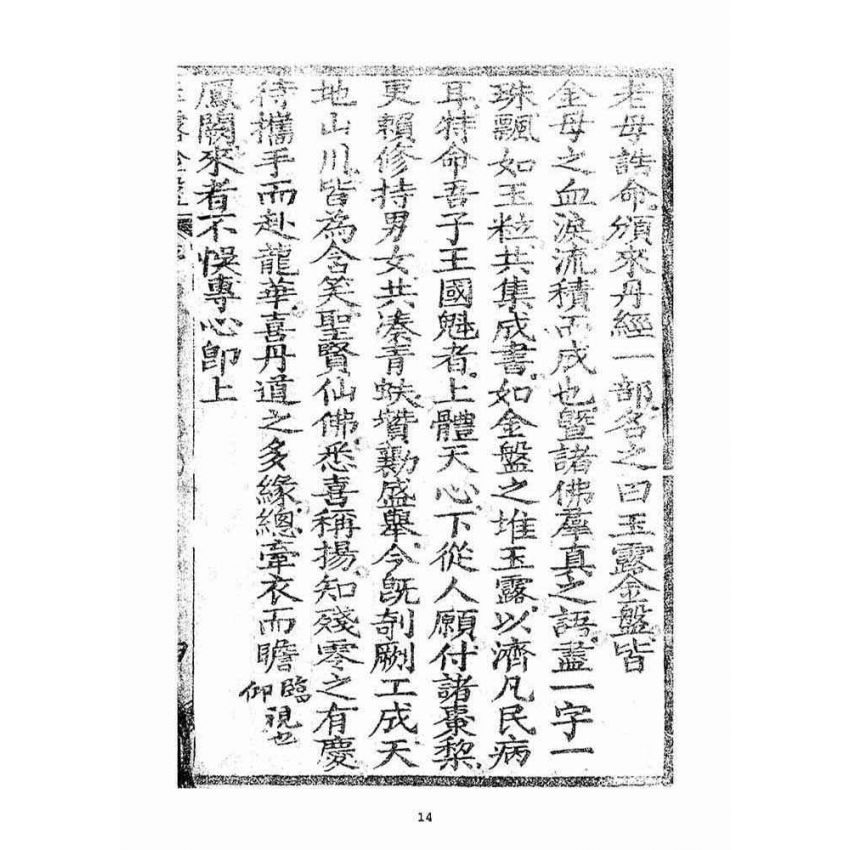 老母誥命頒來丹經一部名之曰玉露金盤皆
金母之血淚流積而成也曁諸佛羣真之語藎一字一
珠飄如玉粒共集成書如金盤之堆玉露以濟凡民病
耳特命吾子王國魁者上體天心下從人願付諸棗黎
更賴修持男女共湊青蚨贊勷盛舉今旣剞劂工成天
地山川皆為含笑聖賢仙佛悉喜稱揚知殘零之有慶
待攜手而赴龍華喜丹道之多緣總牽衣而瞻仰臨視也
鳳闕來者不悞專心卽上
玉露金盤
14